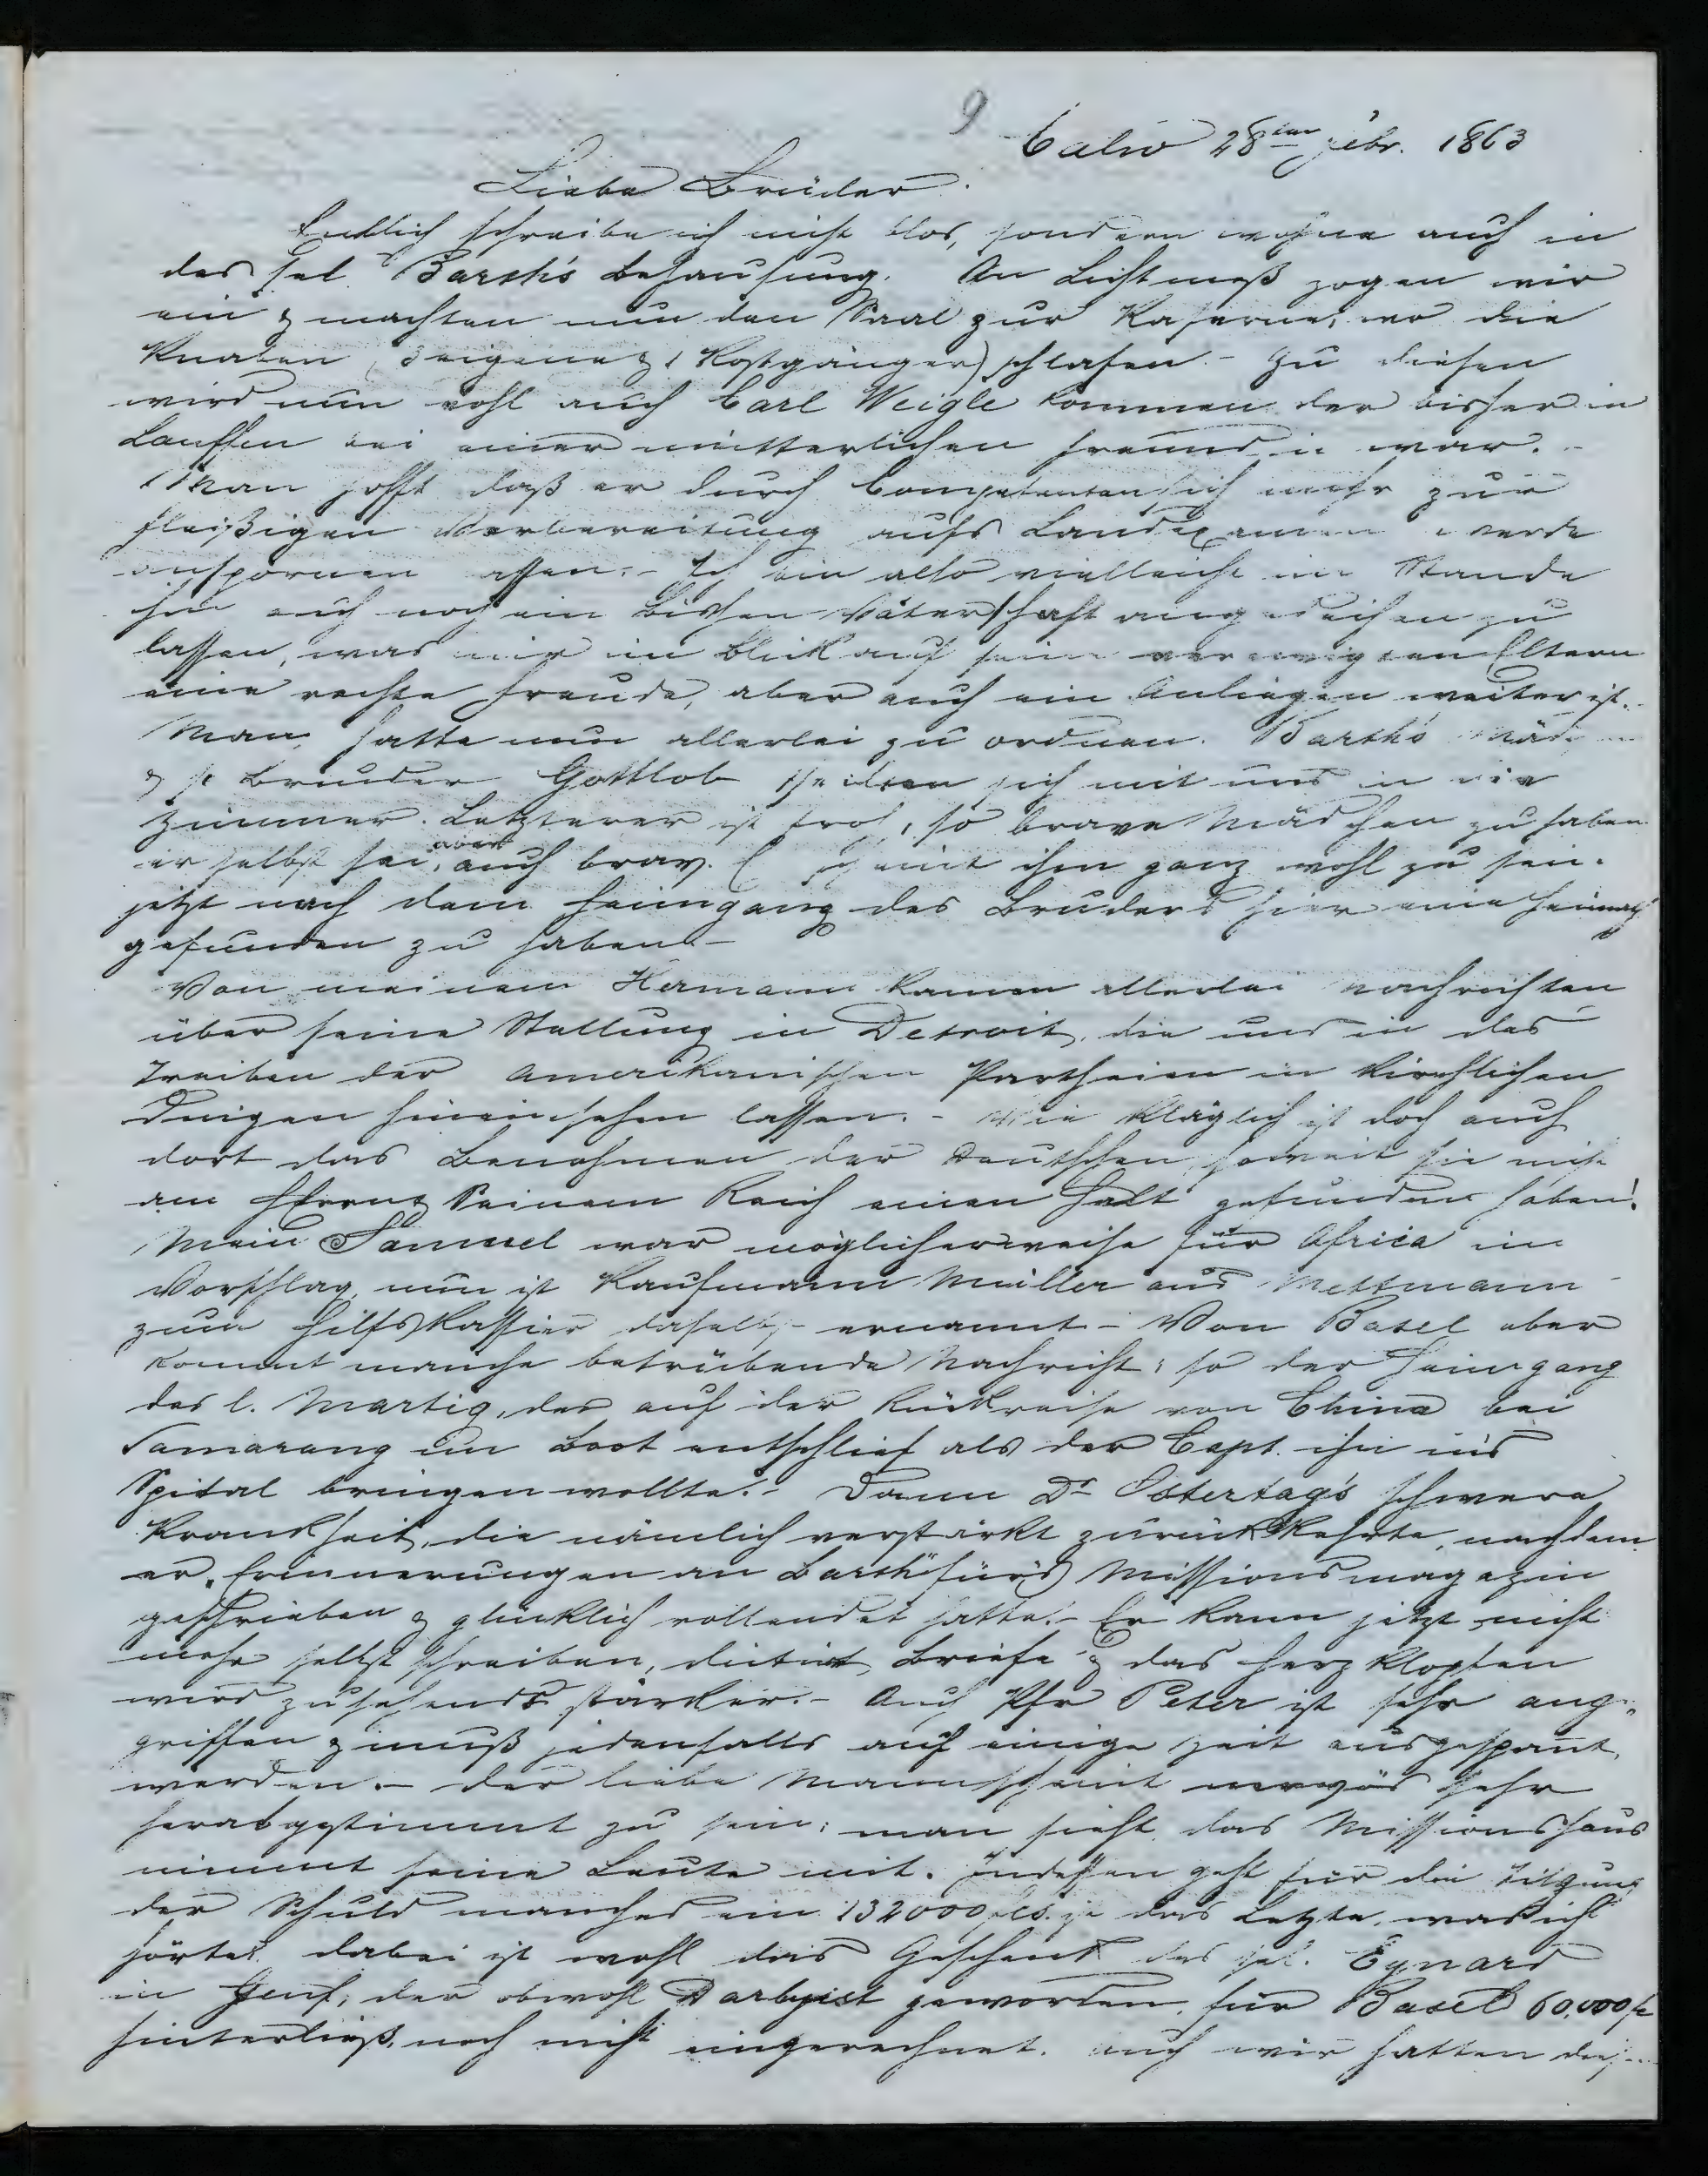 9
Calw 28ten Febr. 1863
Liebe Brüder.
Endlich schreibe ich nicht blos, sondern wohne auch in
des sel. Barth's Behausung. An Lichtmeß zogen wir
ein & machten nun den Saal zur Kaserne, wo die
Knaben (3 eigene & 1 Kostgänger) schlafen. - Zu diesen
wird nun wohl auch Carl Weigle kommen der bisher in
Lauffen bei einer mütterlichen Freundin war. -
Man hofft daß er durch Competenten sich mehr zur
fleißigen Vorbereitung aufs Landexamen werde
anspornen lassen. - Ich bin also vielleicht im Stande
ihm auch noch ein bischen Väterschaft angedeihen zu
lassen, was mir im Blick auf seine verewigten Eltern
eine rechte Freude, aber auch ein Anliegen weiter ist. -
Man hatte nun allerlei zu ordnen. Barth's Mädchen
& se Bruder Gottlob theilen sich mit uns in die
Zimmer. Letzterer ist froh, so brave Mädchen zu haben
er selbst sei aber auch brav. Es scheint ihm ganz wohl zu sein.
jetzt nach dem Heimgang des Bruders hier eine Heimath
gefunden zu haben. -
Von meinem Hermann kamen allerlei Nachrichten
über seine Stellung in Detroit, die uns in das
Treiben der Amerikanischen Partheien in kirchlichen
Dingen hineinsehen lassen. - Wie kläglich ist doch auch
dort das Benehmen der Deutschen, soweit sie nicht
am HErrn & Seinem Reich einen Halt gefunden haben!
Mein Samuel war möglicherweise für Africa im
Vorschlag, nun ist Kaufmann Müller aus Mettmann
zum Hilfskassier daselbst ernannt - Von Basel aber
kommt manche betrübende Nachricht: so der Heimgang
des l. Martig, der auf der Rückreise von China bei
Samarang im Boot entschlief als der Capt. ihn in's
Spital bringen wollte. - Dann Dr Ostertag's schwere
Krankheit, die nämlich verstärkt zurückkehrte, nachdem
er "Erinnerungen an Barth" für's Missionsmagazin
geschrieben & glücklich vollendet hatte. - Er kann jetzt nicht
mehr selbst schreiben, dictirt Briefe & das Herzklopfen
wird zusehends stärker. - Auch Pfr Peter ist sehr ange-
griffen & muß jedenfalls auf einige Zeit ausgespannt
werden. - Der liebe Mann scheint nervös sehr
herabgestimmt zu sein: man sieht das Missionshaus
nimmt seine Leute mit. Indessen geht für die Tilgung
der Schuld manches ein 132000 fcs. ist das Letzte, was ich
hörte. dabei ist wohl das Geschenk des sel. Eynard
in Genf, der obwohl Darbyist geworden, für Basel 60,000 fc
hinterließ, noch nicht eingerechnet. Auch wir hatten